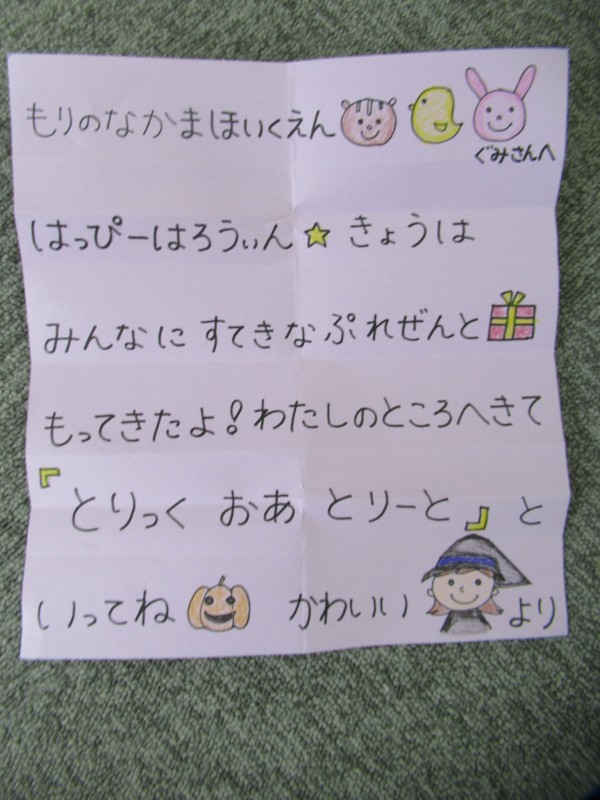 もりのなかまほいくえん
ぐみさんへ
はっぴーはろうぃん☆ きょうは
みんなに すてきな ぷれぜんと
もってきたよ！わたしのところへきて
『とりっく おあ とりーと』と
いってね かわいい より